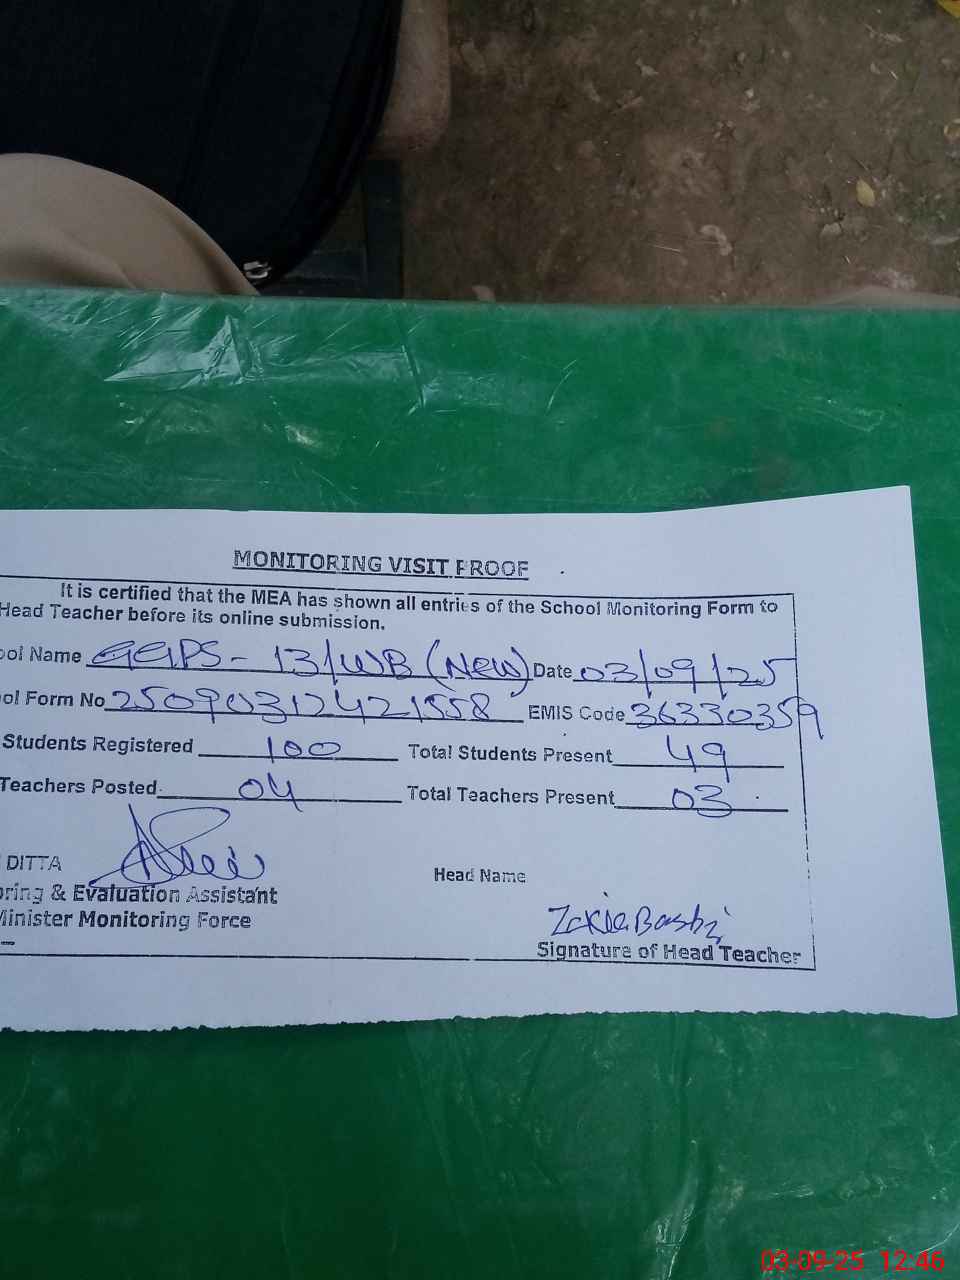 MONITORING VISIT PROOF
It is certified that the MEA has shown all entries of the School Monitoring Form to
Head Teacher before its online submission.
ool Name GGPS - 13/WB (New) Date 03/09/25
ol Form No 25090312421558 EMIS Code 36330359
Students Registered 100 Total Students Present 49
Teachers Posted 04 Total Teachers Present 03
DITTA
Head Name
oring & Evaluation Assistant
Minister Monitoring Force
Signature of Head Teacher
03-09-25 12:46